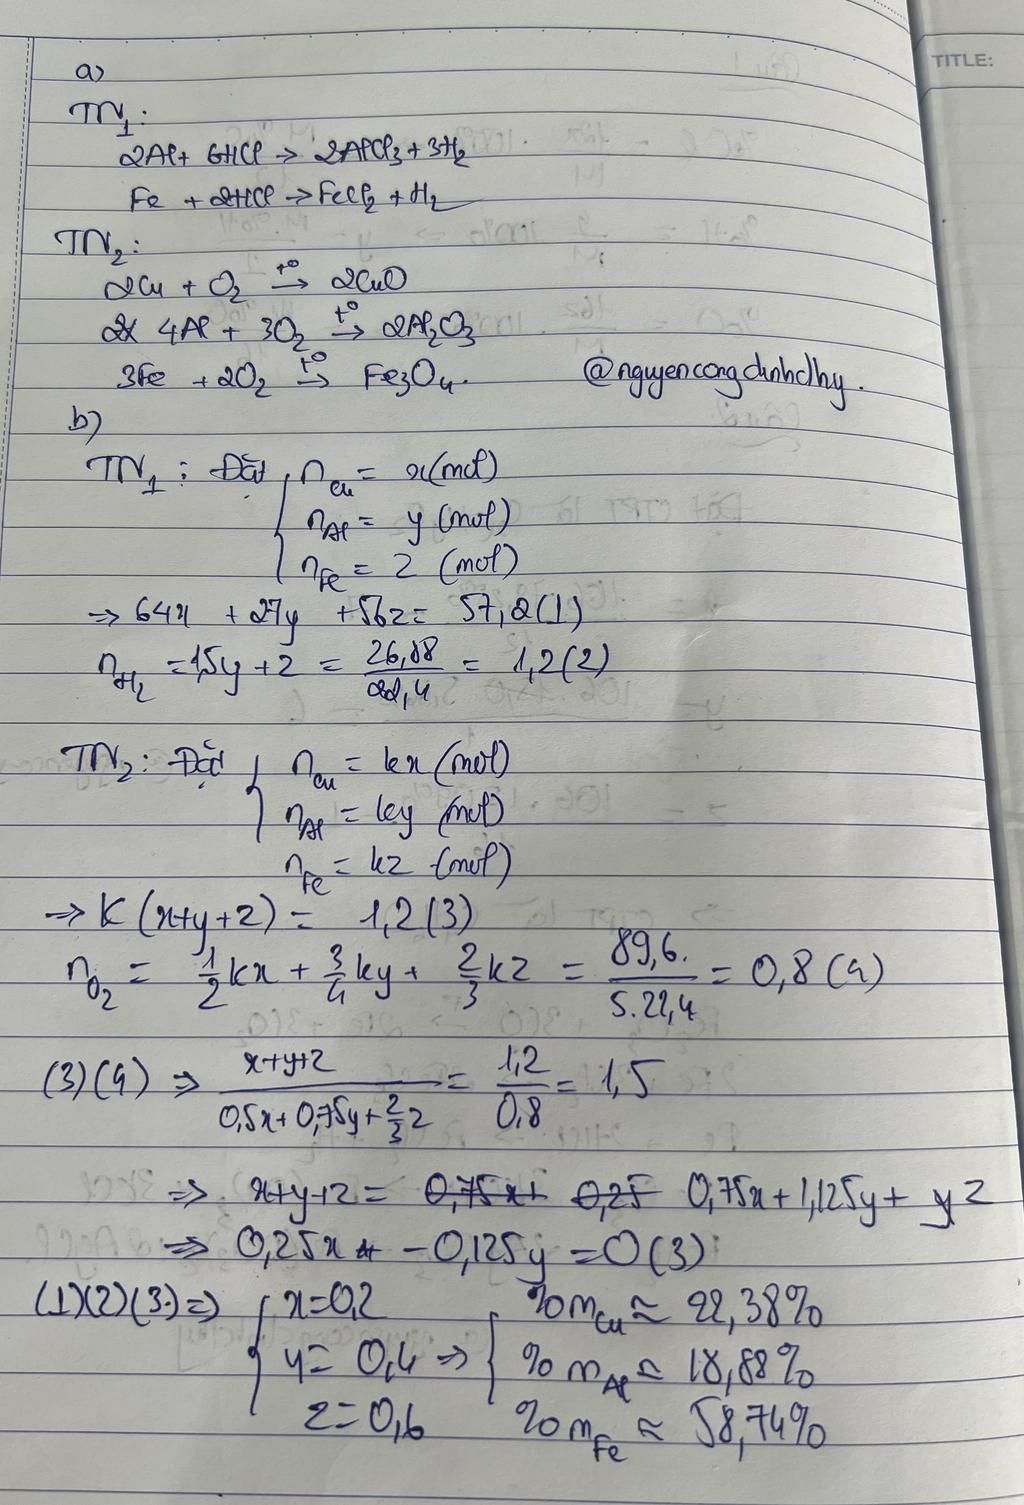 TITLE:
a)
TN₁:
2Al + 6HCl → 2AlCl₃ + 3H₂
Fe + 2HCl → FeCl₂ + H₂
TN₂:
2Cu + O₂ →(t°) 2CuO
4Al + 3O₂ →(t°) 2Al₂O₃
3Fe + 2O₂ →(t°) Fe₃O₄.
@nguyencongdinhclhy.
b)
TN₁: Đặt { n_Cu = x (mol)
n_Al = y (mol)
n_Fe = z (mol)
⇒ 64x + 27y + 56z = 57,2 (1)
n_H₂ = 1,5y + z = 26,88/22,4 = 1,2 (2)
TN₂: Đặt { n_Cu = kx (mol)
n_Al = ky (mol)
n_Fe = kz (mol)
⇒ K(x+y+z) = 1,2 (3)
n_O₂ = 1/2 kx + 3/4 ky + 2/3 kz = 89,6./5.22,4 = 0,8 (4)
(3)(4) ⇒ x+y+z/0,5x+0,75y+2/3 z = 1,2/0,8 = 1,5
⇒ x+y+z = 0,75x+ 0,25 0,75x + 1,125y + z
⇒ 0,25x - 0,125y = 0 (3)
(1)(2)(3) ⇒ { x = 0,2 %m_Cu ≈ 22,38%
y = 0,4 ⇒ { %m_Al ≈ 18,88%
z = 0,6 %m_Fe ≈ 58,74%